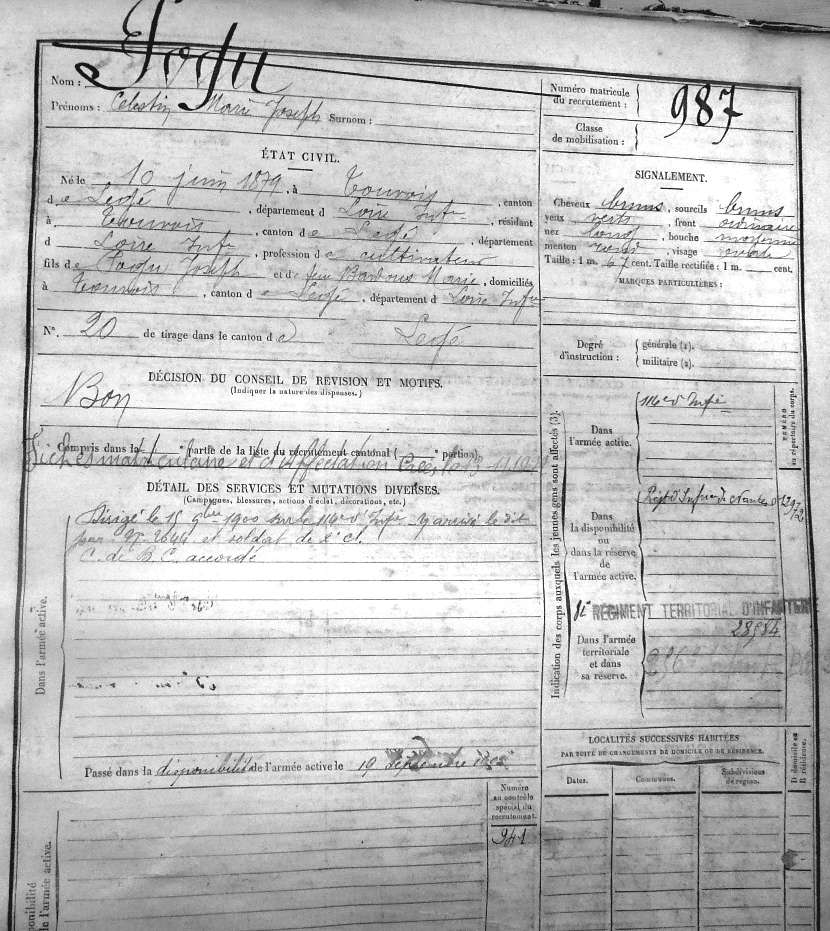 Nom : Fogu
Prénoms : Celestin Marie Joseph Surnom :
ÉTAT CIVIL.
Né le 10 juin 1879, à Touvois, canton
d e Legé, département d Loire Infre, résidant
à Touvois, canton d e Legé, département
d Loire Infre, profession d e cultivateur
fils d e Joseph et d e feu Marie, domiciliés
à Touvois, canton d e Legé, département d Loire Infre
N°. 20 de tirage dans le canton d e Legé
DÉCISION DU CONSEIL DE REVISION ET MOTIFS.
(Indiquer la nature des dispenses.)
Bon
Compris dans la " partie de la liste du recrutement cantonal ( " portion)
Fiches matriculaire et d'Affectation
DÉTAIL DES SERVICES ET MUTATIONS DIVERSES.
(Campagnes, blessures, actions d'éclat, décorations, etc.)
Dirigé le 15 9bre 1900 sur le 116e d'Infie Y arrivé le dit
jour. et soldat de 2e cl.
C. de B. C. accordé
Dans l'armée active.
Passé dans la disponibilité de l'armée active le 19 septembre
Numéro
au contrôle
spécial du
recrutement.
941
Numéro matricule
du recrutement :
987
Classe
de mobilisation :
SIGNALEMENT.
Cheveux bruns, sourcils bruns
yeux verts, front ordinaire
nez long, bouche moyenne
menton rond, visage ovale
Taille : 1 m. 67 cent. Taille rectifiée : 1 m. cent.
MARQUES PARTICULIÈRES :
Degré
d'instruction :
générale (1).
militaire (2).
Indication des corps auxquels les jeunes gens sont affectés (3).
NUMÉRO
au répertoire du corps.
Dans
l'armée active.
116e d'Infie
Dans
la disponibilité
ou
dans la réserve
de
l'armée active.
Régt d'Infie de Nantes
81E RÉGIMENT TERRITORIAL D'INFANTERIE
28984
Dans l'armée
territoriale
et dans
sa réserve.
LOCALITÉS SUCCESSIVES HABITÉES
PAR SUITE DE CHANGEMENTS DE DOMICILE OU DE RÉSIDENCE.
D domicile ou
R résidence.
Dates.
Communes.
Subdivisions
de région.
de l'armée active.